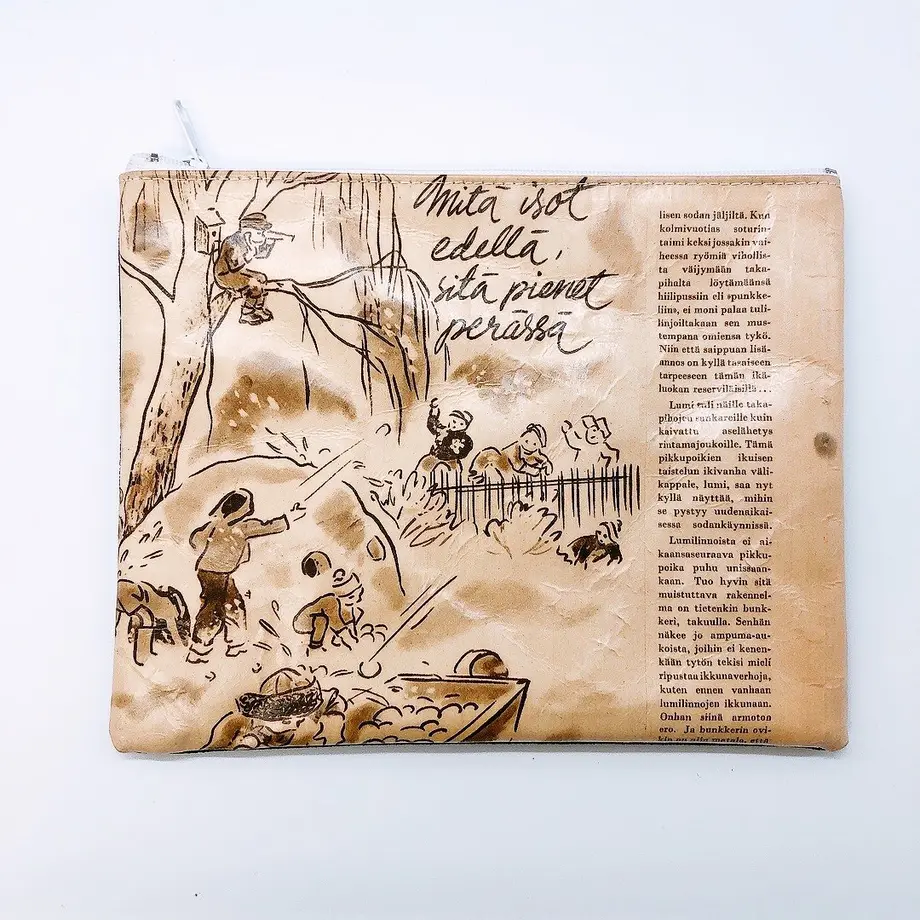 Mitä isot
edellä,
sitä pienet
perässä
lisen sodan jäljiltä. Kun
kolmivuotias soturin-
taimi keksi jossakin vai-
heessa ryömiä vihollis-
ta väijymään taka-
pihalta löytämäänsä
hiilipussiin eli spunkke-
liins, ei moni palaa tuli-
linjoiltakaan sen mus-
tempana omiensa tykö.
Niin että saippuan lisä-
annos on kyllä tasaiseen
tarpeeseen tämän ikä-
luokan reserviläisillä...
Lumi tuli näille taka-
pihojen sankareille kuin
kaivattu aselähetys
rintamajoukoille. Tämä
pikkupoikien ikuisen
taistelun ikivanha väli-
kappale, lumi, saa nyt
kyllä näyttää, mihin
se pystyy uudenaikai-
sessa sodankäynnissä.
Lumilinnoista ei ai-
kaansaseuraava pikku-
poika puhu unissaan-
kaan. Tuo hyvin sitä
muistuttava rakennel-
ma on tietenkin bunk-
keri, takuulla. Senhän
näkee jo ampuma-au-
koista, joihin ei kenen-
kään tytön tekisi mieli
ripustaa ikkunaverhoja,
kuten ennen vanhaan
lumilinnojen ikkunaan.
Onhan siinä armoton
ero. Ja bunkkerin ovi-